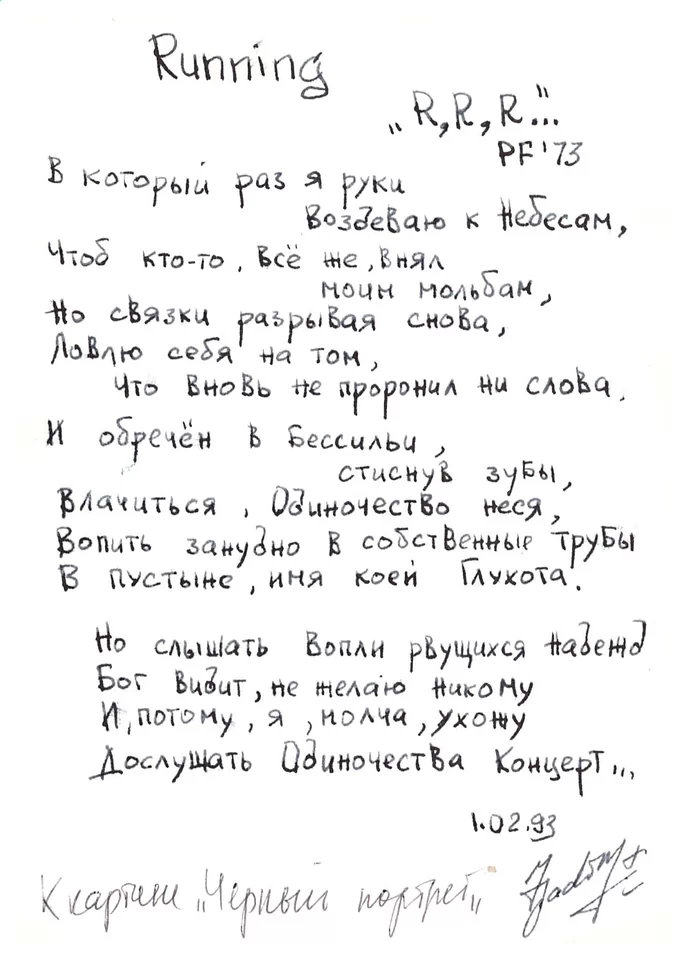 Running
„R, R, R..."
PF '73
В который раз я руки
Воздеваю к Небесам,
Чтоб кто-то, всё же, внял
моим мольбам,
Но связки разрывая снова,
Ловлю себя на том,
Что вновь не проронил ни слова.
И обречён в Бессильи,
стиснув зубы,
Влачиться, Одиночество неся,
Вопить занудно в собственные трубы
В пустыне, имя коей Глухота.
Но слышать Вопли рвущихся Надежд
Бог видит, не желаю никому
И, потому, я, молча, ухожу
Дослушать Одиночества Концерт...
1.02.93
К картине „Чёрный портрет"